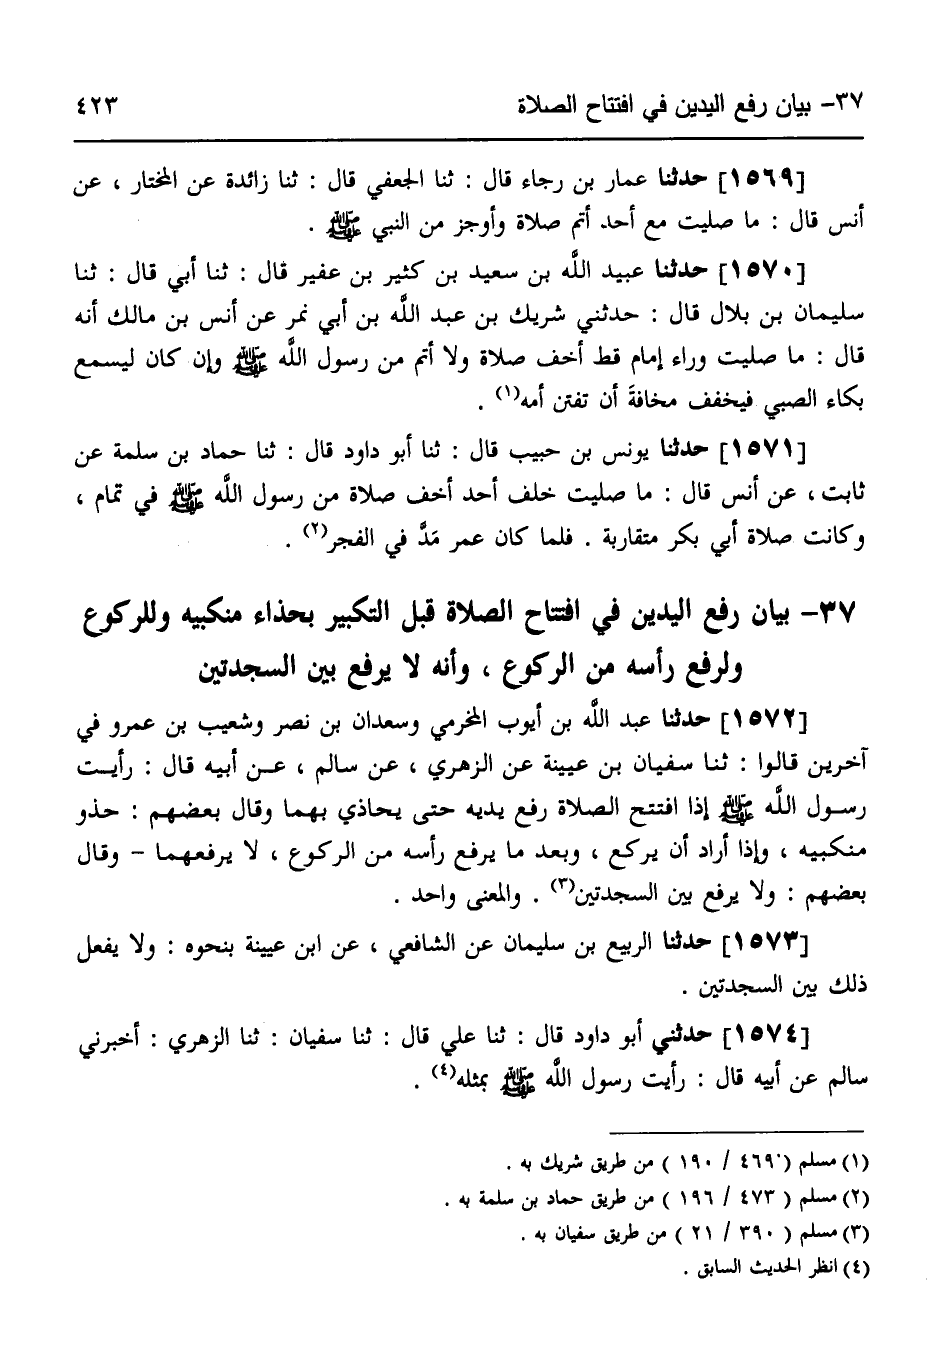 ٣٧- بيان رفع اليدين في افتتاح الصلاة ٤٢٣
[١٥٦٩] حدثنا عمار بن رجاء قال : ثنا الجعفي قال : ثنا زائدة عن المختار ، عن
أنس قال : ما صليت مع أحد أتم صلاة وأوجز من النبي ﷺ .
[١٥٧٠] حدثنا عبيد اللَّه بن سعيد بن كثير بن عفير قال : ثنا أبي قال : ثنا
سليمان بن بلال قال : حدثني شريك بن عبد اللَّه بن أبي نمر عن أنس بن مالك أنه
قال : ما صليت وراء إمام قط أخف صلاة ولا أتم من رسول اللَّه ﷺ وإن كان ليسمع
بكاء الصبي فيخفف مخافةَ أن تفتن أمه(١) .
[١٥٧١] حدثنا يونس بن حبيب قال : ثنا أبو داود قال : ثنا حماد بن سلمة عن
ثابت ، عن أنس قال : ما صليت خلف أحد أخف صلاة من رسول اللَّه ﷺ في تمام ،
وكانت صلاة أبي بكر متقاربة . فلما كان عمر مَدَّ في الفجر(٢) .
٣٧- بيان رفع اليدين في افتتاح الصلاة قبل التكبير بحذاء منكبيه وللركوع
ولرفع رأسه من الركوع ، وأنه لا يرفع بين السجدتين
[١٥٧٢] حدثنا عبد اللَّه بن أيوب المخرمي وسعدان بن نصر وشعيب بن عمرو في
آخرين قالوا : ثنا سفيان بن عيينة عن الزهري ، عن سالم ، عن أبيه قال : رأيت
رسول اللَّه ﷺ إذا افتتح الصلاة رفع يديه حتى يحاذي بهما وقال بعضهم : حذو
منكبيه ، وإذا أراد أن يركع ، وبعد ما يرفع رأسه من الركوع ، لا يرفعهما - وقال
بعضهم : ولا يرفع بين السجدتين(٣) . والمعنى واحد .
[١٥٧٣] حدثنا الربيع بن سليمان عن الشافعي ، عن ابن عيينة بنحوه : ولا يفعل
ذلك بين السجدتين .
[١٥٧٤] حدثني أبو داود قال : ثنا علي قال : ثنا سفيان : ثنا الزهري : أخبرني
سالم عن أبيه قال : رأيت رسول اللَّه ﷺ بمثله(٤) .
(١) مسلم (٤٦٩ / ١٩٠ ) من طريق شريك به .
(٢) مسلم ( ٤٧٣ / ١٩٦ ) من طريق حماد بن سلمة به .
(٣) مسلم ( ٣٩٠ / ٢١ ) من طريق سفيان به .
(٤) انظر الحديث السابق .